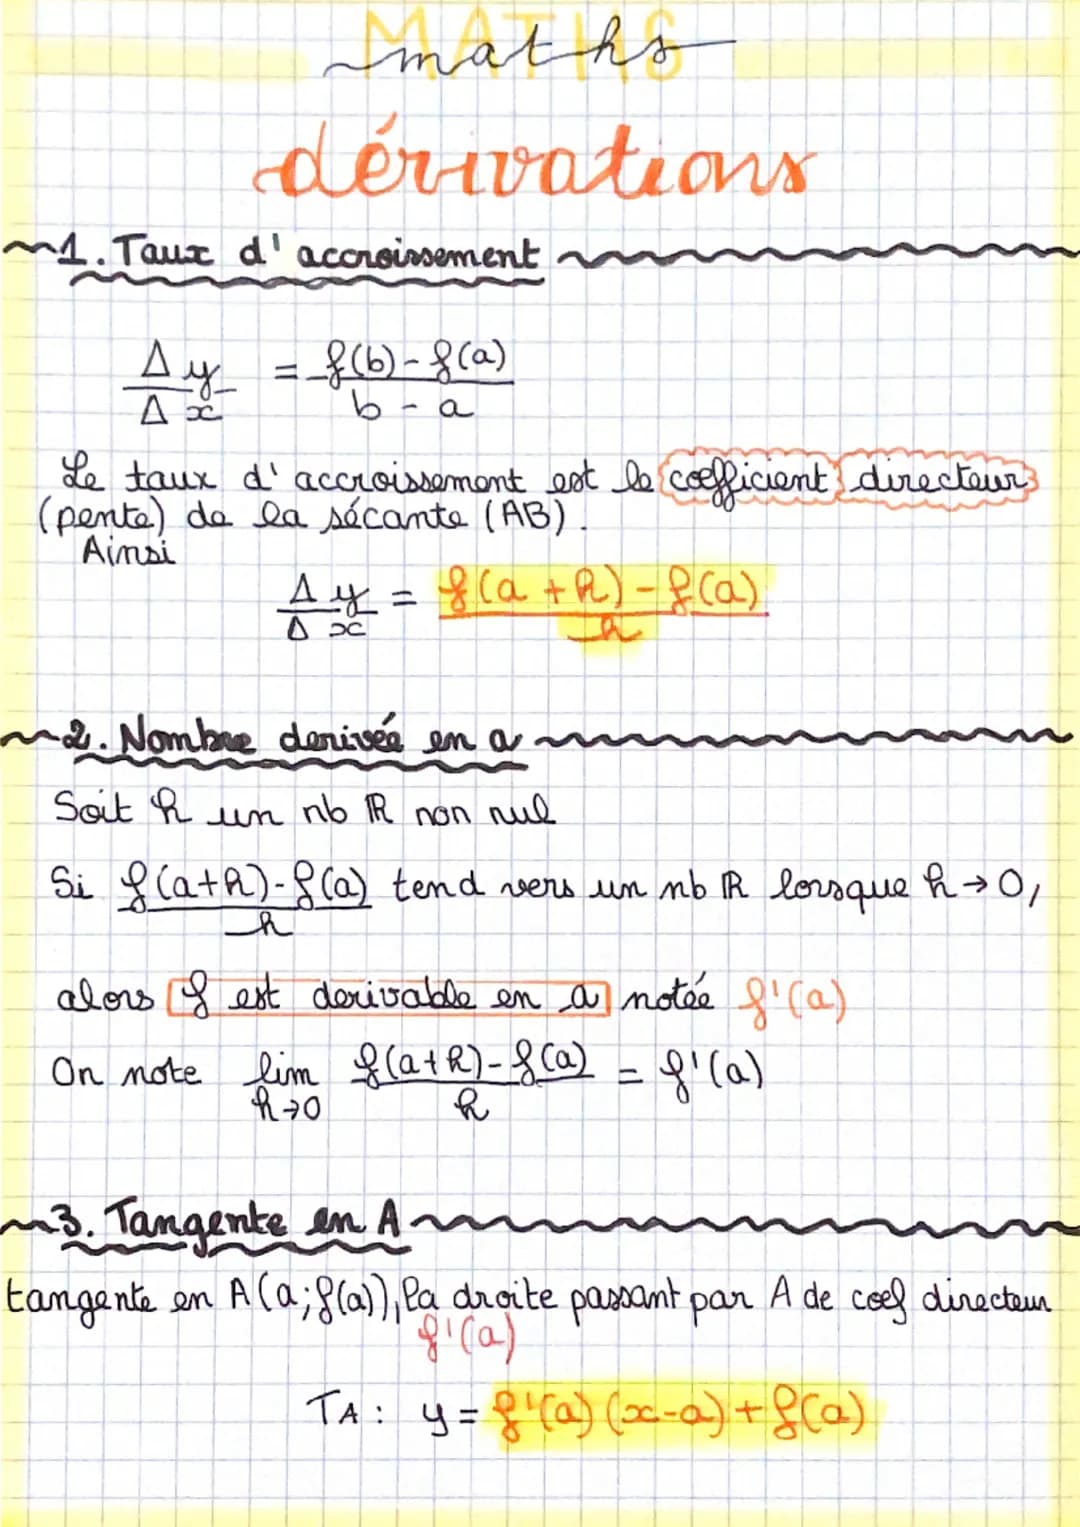 MATHS
maths
dérivations
1. Taux d'accroissement
Δy/Δx = f(b)-f(a)/b-a
Le taux d'accroissement est le coefficient directeur
(pente) de la sécante (AB).
Ainsi
Δy/Δx = f(a+h)-f(a)/h
2. Nombre derivée en a
Soit h un nb ℝ non nul
Si f(a+h)-f(a)/h tend vers un nb ℝ lorsque h→0,
alors f est derivable en a notée f'(a)
On note lim h→0 f(a+h)-f(a)/h = f'(a)
3. Tangente en A
tangente en A(a;f(a)), la droite passant par A de coef directeur
f'(a)
TA: y = f'(a)(x-a)+f(a)